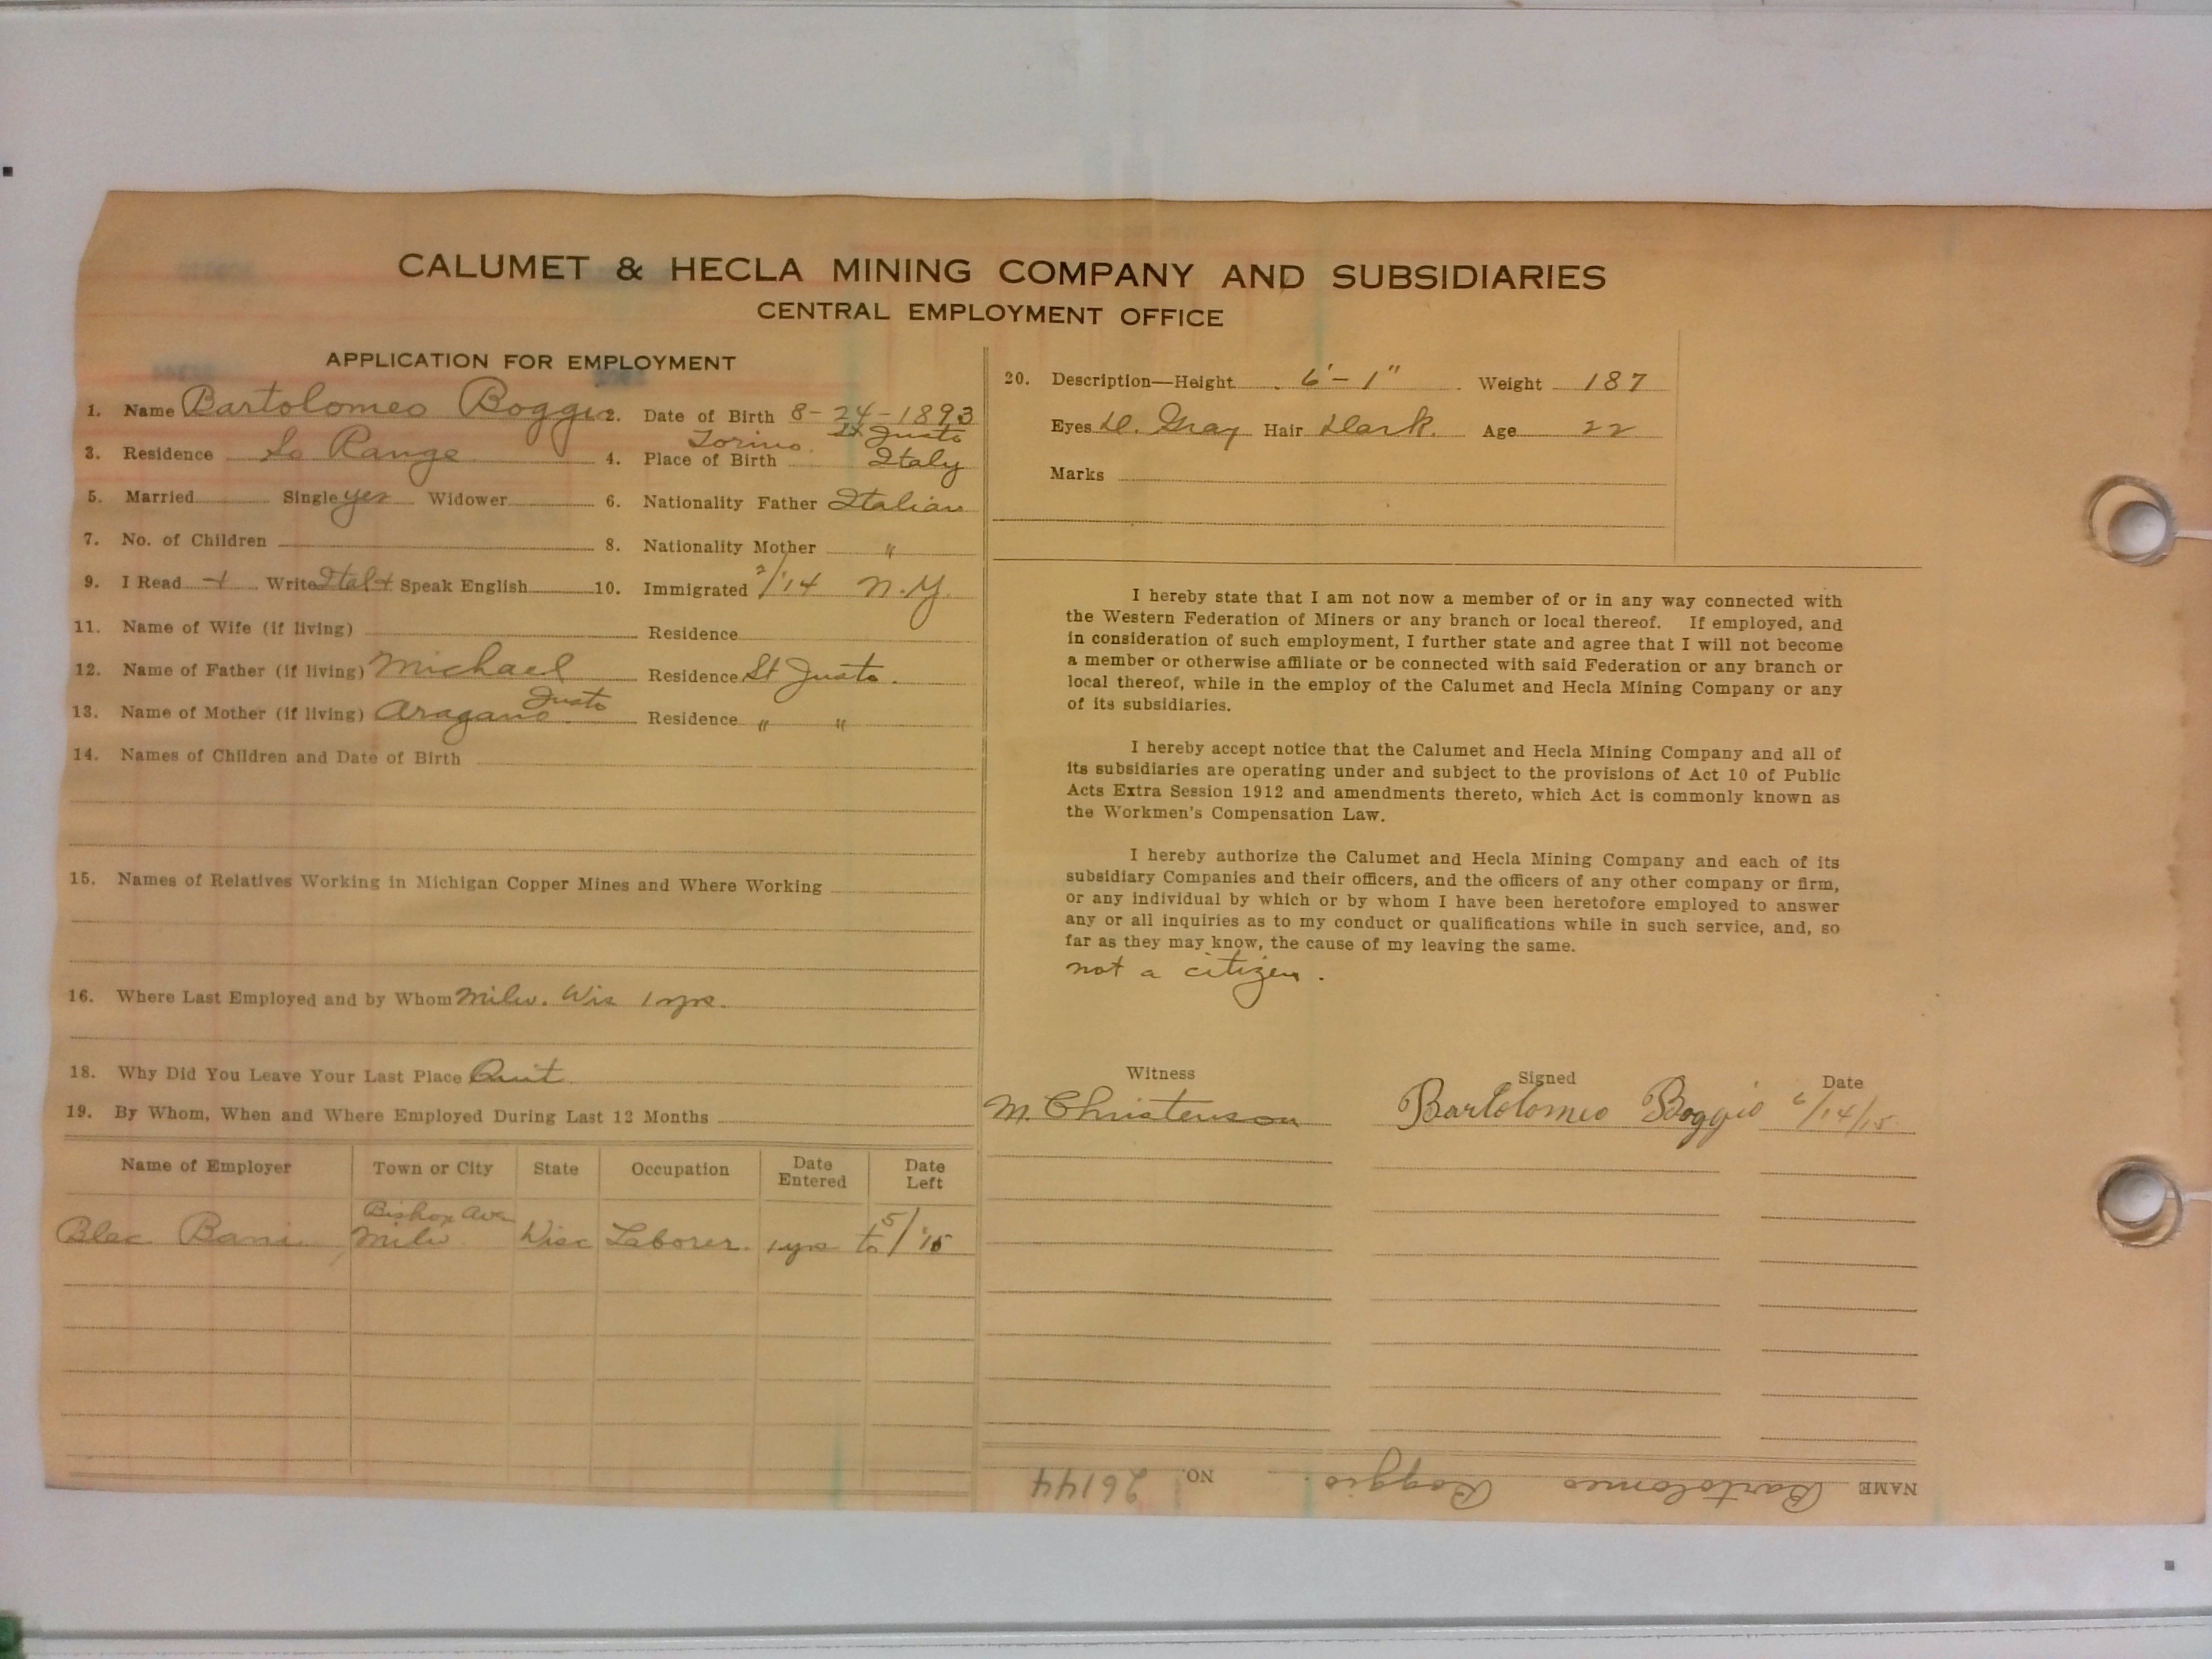 CALUMET & HECLA MINING COMPANY AND SUBSIDIARIES
CENTRAL EMPLOYMENT OFFICE
APPLICATION FOR EMPLOYMENT
1. Name Bartolomeo Boggio 2. Date of Birth 8-24-1893
Torino. St Justo
3. Residence So Range 4. Place of Birth Italy
5. Married Single yes Widower 6. Nationality Father Italian
7. No. of Children 8. Nationality Mother "
9. I Read + Write Ital + Speak English 10. Immigrated 2/'14 N.Y.
11. Name of Wife (if living) Residence
12. Name of Father (if living) Michael Residence St Justo.
Justo
13. Name of Mother (if living) Aragano Residence " "
14. Names of Children and Date of Birth
15. Names of Relatives Working in Michigan Copper Mines and Where Working
16. Where Last Employed and by Whom Milw. Wis 1 yrs.
18. Why Did You Leave Your Last Place Quit
19. By Whom, When and Where Employed During Last 12 Months
Name of Employer Town or City State Occupation Date Entered Date Left
Bishop Ave
Milw Wisc Laborer. 1 yrs to 5/'15
20. Description—Height 6'-1" Weight 187
Eyes D. Gray Hair Dark. Age 22
Marks
I hereby state that I am not now a member of or in any way connected with
the Western Federation of Miners or any branch or local thereof. If employed, and
in consideration of such employment, I further state and agree that I will not become
a member or otherwise affiliate or be connected with said Federation or any branch or
local thereof, while in the employ of the Calumet and Hecla Mining Company or any
of its subsidiaries.
I hereby accept notice that the Calumet and Hecla Mining Company and all of
its subsidiaries are operating under and subject to the provisions of Act 10 of Public
Acts Extra Session 1912 and amendments thereto, which Act is commonly known as
the Workmen's Compensation Law.
I hereby authorize the Calumet and Hecla Mining Company and each of its
subsidiary Companies and their officers, and the officers of any other company or firm,
or any individual by which or by whom I have been heretofore employed to answer
any or all inquiries as to my conduct or qualifications while in such service, and, so
far as they may know, the cause of my leaving the same.
not a citizen.
Witness Signed Date
M. Christenson Bartolomeo Boggio 6/14/15
NAME Bartolomeo Boggio. NO. 26144